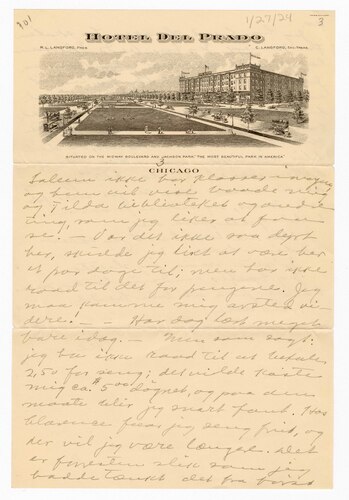 901
1/27/24
3
HOTEL DEL PRADO
H. L. LANGFORD, PRES.
C. LANGFORD, SEC.-TREAS.
SITUATED ON THE MIDWAY BOULEVARD AND JACKSON PARK, "THE MOST BEAUTIFUL PARK IN AMERICA"
3
CHICAGO
ikke har klasser
og han vil vise baade mig
og Tilda biblioteket og
som jeg liker at faa
se. — Var det ikke saa dyrt
her, skulde jeg likt at være her
et par dage til; men har ikke
raad til det for pengene. Jeg
maa mig avsted vi-
dere! — Har dog læst meget
bare idag. — Men som sagt:
jeg har ikke raad til at betale
2,50 for seng; det vilde koste
mig ca. $5.00 døgnet, og paa den
maate blir jeg snart fant. Hos
Clarence faar jeg seng frit, og
der vil jeg være længer. Det er
forresten slik som jeg
hadde tænkt det fra først